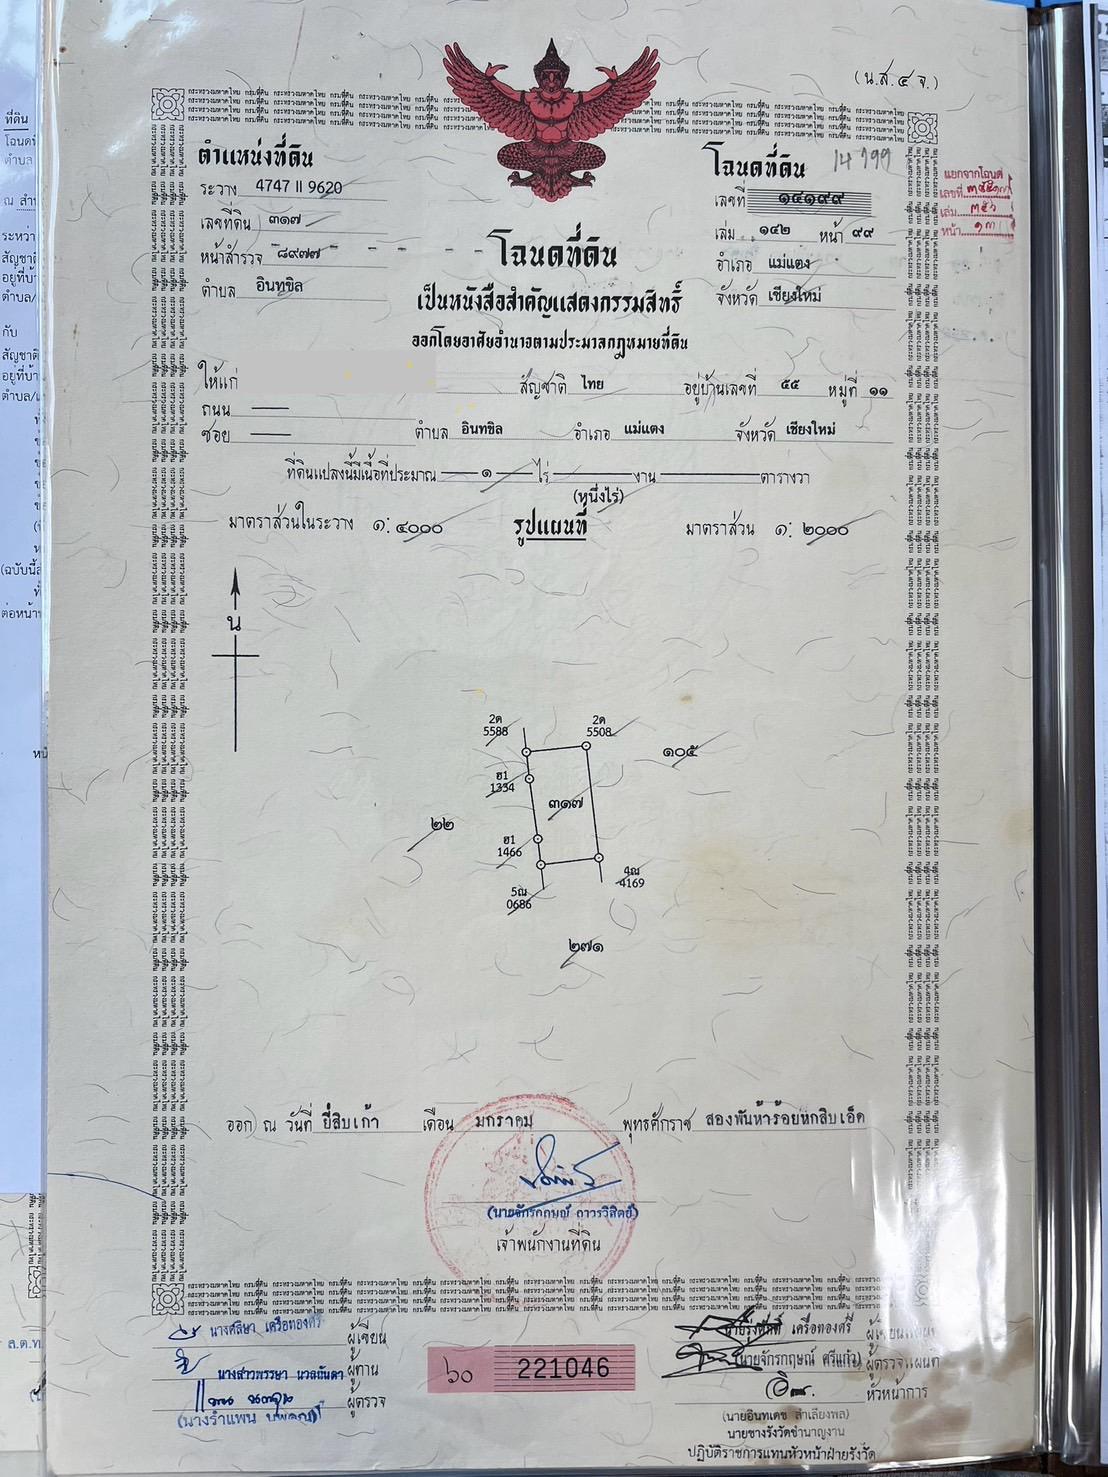 (น.ส.๔ จ.)
ตำแหน่งที่ดิน
ระวาง 4747 II 9620
เลขที่ดิน ๓๑๗
หน้าสำรวจ ๘๙๗๗
ตำบล อินทขิล
โฉนดที่ดิน
เลขที่ ๑๔๑๙๙
เล่ม ๑๔๒ หน้า ๙๙
อำเภอ แม่แตง
จังหวัด เชียงใหม่
แยกจากโฉนด
เลขที่
เล่ม
หน้า
โฉนดที่ดิน
เป็นหนังสือสำคัญแสดงกรรมสิทธิ์
ออกโดยอาศัยอำนาจตามประมวลกฎหมายที่ดิน
ให้แก่ สัญชาติ ไทย อยู่บ้านเลขที่ ๕๕ หมู่ที่ ๑๑
ถนน —
ซอย — ตำบล อินทขิล อำเภอ แม่แตง จังหวัด เชียงใหม่
ที่ดินแปลงนี้มีเนื้อที่ประมาณ ๑ ไร่ — งาน — ตารางวา
(หนึ่งไร่)
มาตราส่วนในระวาง ๑: ๔๐๐๐ รูปแผนที่ มาตราส่วน ๑: ๒๐๐๐
น
2ด
5588
2ด
5508
๑๐๕
ฮ1
1334
๓๑๗
๒๒
ฮ1
1466
4ณ
4169
5ณ
0686
๒๗๑
ออก ณ วันที่ ยี่สิบเก้า เดือน มกราคม พุทธศักราช สองพันห้าร้อยหกสิบเอ็ด
(นายจักรกฤษณ์ ถาวรวิสิตย์)
เจ้าพนักงานที่ดิน
นางศลิษา เครือทองศรี ผู้เขียน
นางสาวพรรษา นวลกันดา ผู้ทาน
ผู้ตรวจ
๖๐ 221046
นายรุ่งศักดิ์ เครือทองศรี ผู้เขียนแผนที่
(นายจักรกฤษณ์ ศรีแก้ว) ผู้ตรวจแผนที่
หัวหน้าการ
(นายอินทเดช สำเลียงพล)
นายช่างรังวัดชำนาญงาน
ปฏิบัติราชการแทนหัวหน้าฝ่ายรังวัด